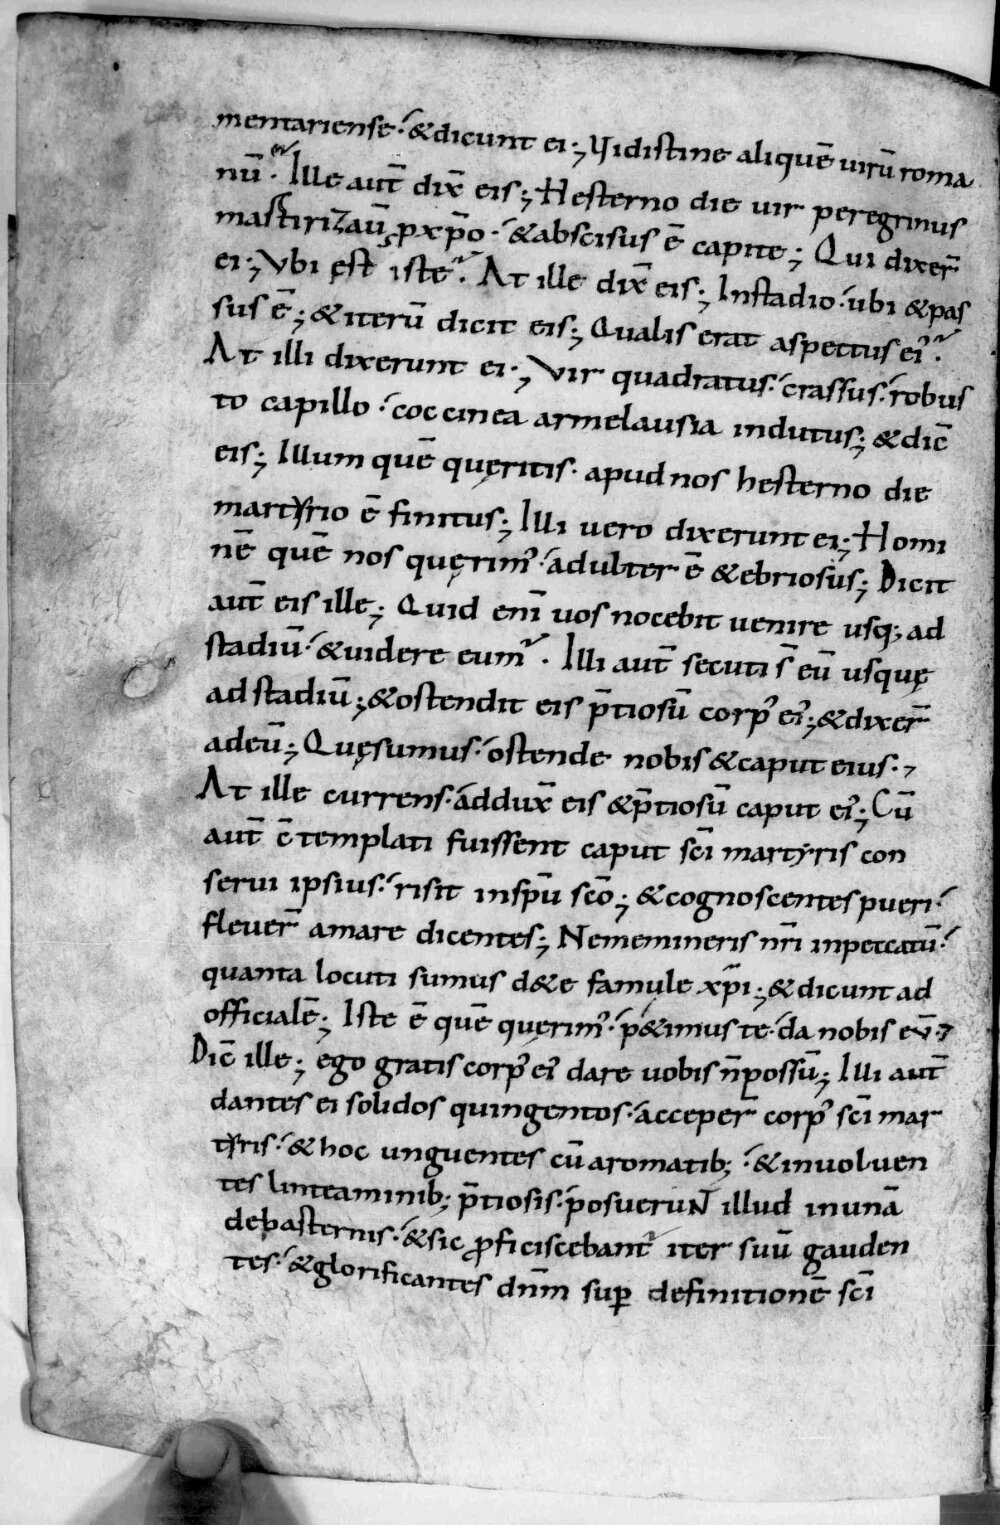 mentariense·́ &dicunt ei; Vidistine aliquē uirū roma
nū·̃ Ille aut̄ dix̄ eis; Hesterno die uir peregrinus
mastirizaū pxp̄o·́ &abscisus ē capite; Qui dixer̄
ei; Vbi ęst iste·̃ At ille dix̄ eis; Instadio·́ ubi &pas
sus ē; &iterū dicit eis; Qualis erat aspectus ei᾽·̃
At illi dixerunt ei·; Vir quadratus·́ crassus·́ robus
to capillo·́ coccinea armelausia indutus; &dic̄
eis; Illum quē quęritis· apud nos hesterno die
martyrio ē finitus; Illi uero dixerunt ei; Homi
nē quē nos quęrim᾽·́ adulter ē &ebriosus; Dicit
aut̄ eis ille; Quid enī uos nocebit uenire usq; ad
stadiū·́ &uidere eum·̃ Illi aut̄ secuti s̄ eū usquę
ad stadiū; &ostendit eis p̄tiosū corp᾽ ei᾽; &dixer̄
adeū; Quęsumus·́ ostende nobis &caput eius·,
At ille currens·́ addux̄ eis &p̄tiosū caput ei᾽; Cū
aut̄ c̄templati fuissent caput sc̄i martyris con
serui ipsius·́ risit insp̄u sc̄o; &cognoscentes pueri·́
fleuer̄ amare dicentes; Nememineris nr̄i inpeccatū·́
quanta locuti sumus d&e famule xp̄i; &dicunt ad
officialē; Iste ē quē quęrim᾽·́ p̄&imus te·́ da nobis eū·,
Dic̄ ille; ego gratis corp᾽ ei᾽ dare uobis n̄ possū; Illi aut̄
dantes ei solidos quingentos·́ acceper̄ corp᾽ sc̄i mar
tyris·́ &hoc unguentes cū aromatib;·́ &inuoluen
tes linteaminib; p̄tiosis·́ posuerunt illud inunā
debasternis·́ &sic ꝓficiscebant᾽ iter suū gauden
tes·́ &glorificantes dn̄m suꝑ definitionē sc̄i